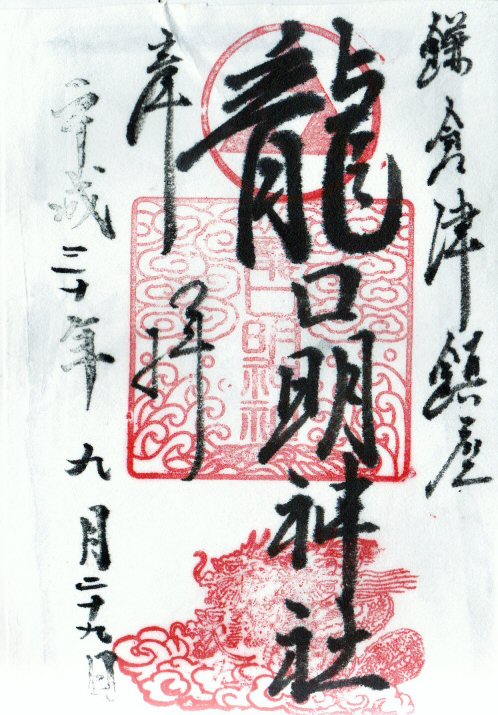 鎌倉津鎮座
龍口明神社
奉拝
平成三十年九月二十九日
龍口明神社